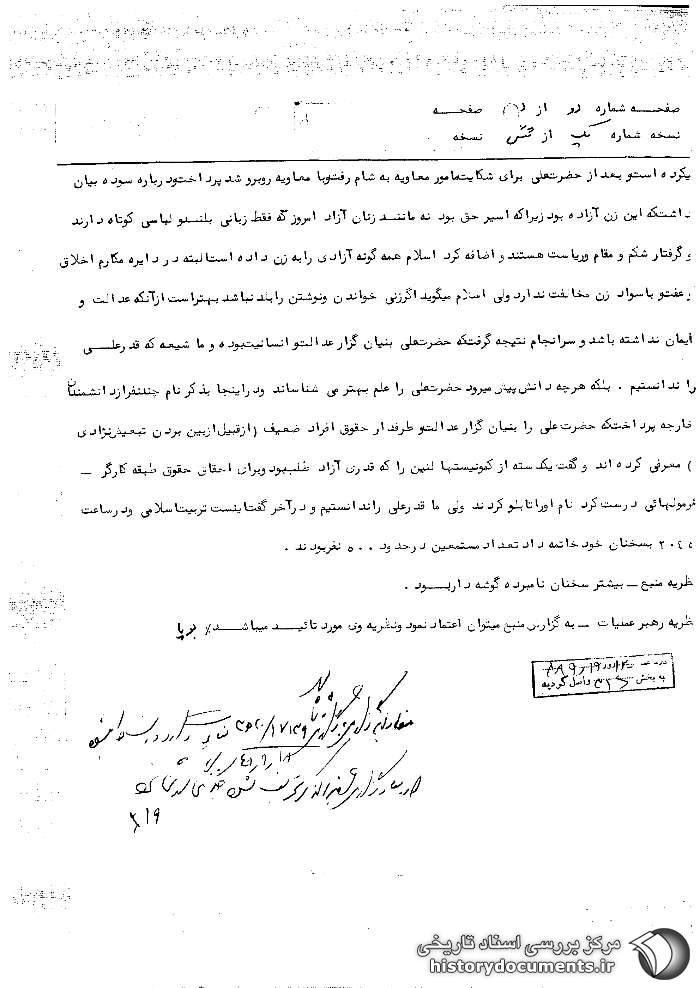 صفحه شماره دو از صفحه
نسخه شماره یک از شش نسخه
یکرده استو بعد از حضرتعلی برای شکایتمامور معاویه به شام رفتوبا معاویه روبرو شد پرداختود رباره سوده بیان
داشتکه این زن آزاده بود زیراکه اسیر حق بود نه مانند زنان آزاد امروز که فقط زبانی بلندو لباسی کوتاه دارند
و گرفتار شکم و مقام وریاست هستند و اضافه کرد اسلام همه گونه آزادی رابه زن داده استالبته در دایره مکارم اخلاق
و عفتو باسواد زن مخالفت ندارد ولی اسلام میگوید اگرزنی خواندن ونوشتن رابلد نباشد بهتراست ازآنکه عدالت و
ایمان نداشته باشد و سرانجام نتیجه گرفتکه حضرتعلی بنیان گزار عدالتو انسانیتبوده و ما شیعه که قدرعلی
را ندانستیم . بلکه هرچه دانش پیش میرود حضرتعلی را علم بهتر می شناساند ودراینجا بذکر نام چندنفرازدانشمندان
خارجه پرداختکه حضرت علی را بنیان گزار عدالتو طرفدار حقوق افراد ضعیف (ازقبیل ازبین بردن تبعیض نژادی
) معرفی کرده اند و گفت یکدسته از کمونیستها لنین را که قدری آزاد طلببود وبرای احقاق حقوق طبقه کارگر –
فرمولهائی درست کرد نام اوراتابلو کردند ولی ما قدرعلی راندانستیم و درآخر گفتاینست تربیتاسلامی ودرساعت
بسخنان خود خاتمه داد تعداد مستمعین درحدود ۵۰۰ نفربودند .
نظریه منبع – بیشتر سخنان نامبرده گوشه داربود .
نظریه رهبر عملیات – به گزارش منبع میتوان اعتماد نمود ونظریه وی مورد تائید میباشد٪ پویا
به بخش واصل گردید
مرکز بررسی اسناد تاریخی
historydocuments.ir